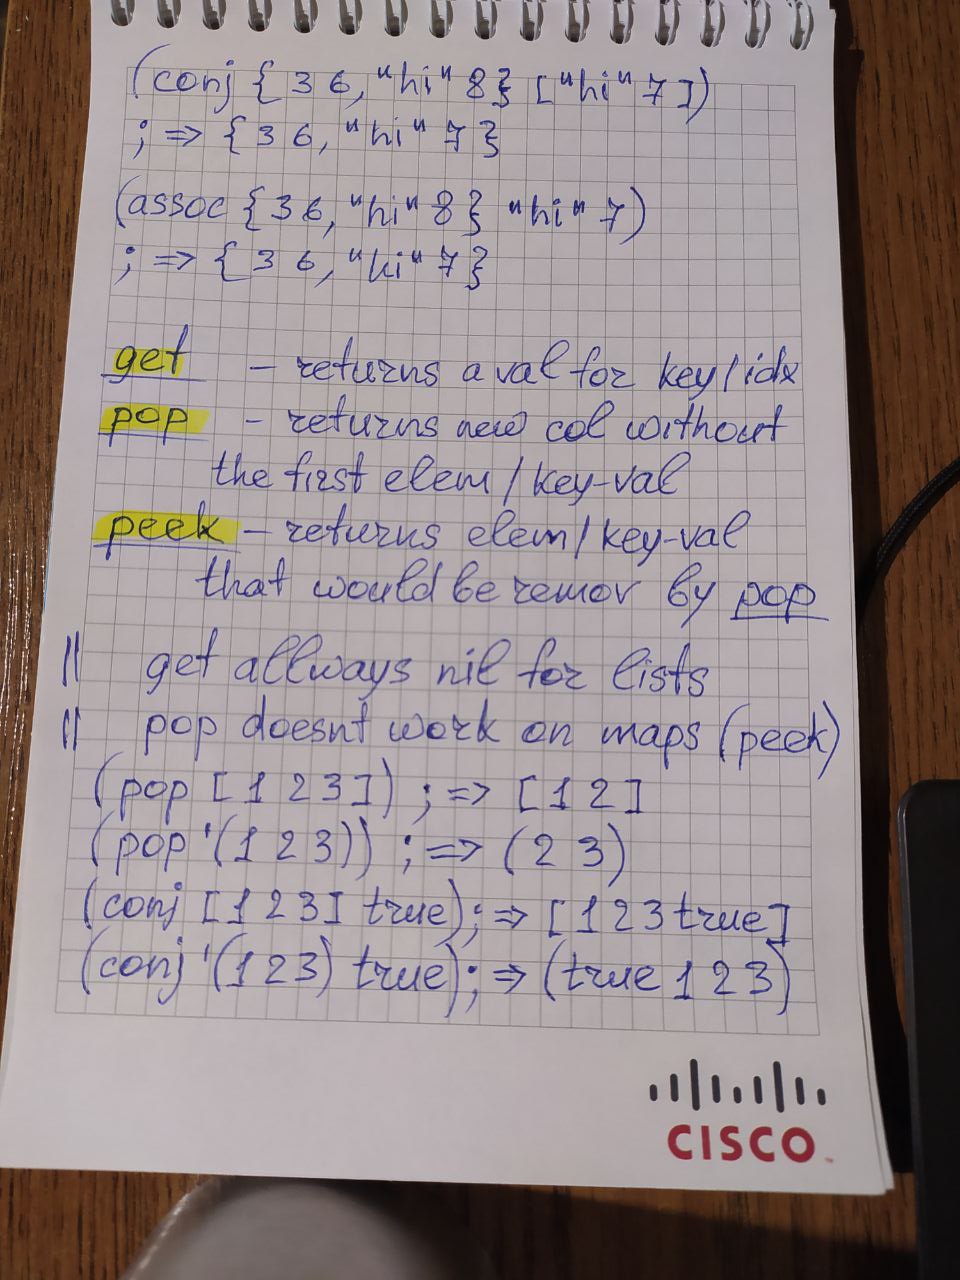 (conj {3 6, "hi" 8} ["hi" 7])
; => {3 6, "hi" 7}
(assoc {3 6, "hi" 8} "hi" 7)
; => {3 6, "hi" 7}
get - returns a val for key/idx
pop - returns new col without
the first elem/key-val
peek - returns elem/key-val
that would be remov by pop
|| get allways nil for lists
|| pop doesnt work on maps (peek)
(pop [1 2 3]) ; => [1 2]
(pop '(1 2 3)) ; => (2 3)
(conj [1 2 3] true) ; => [1 2 3 true]
(conj '(1 2 3) true) ; => (true 1 2 3)
CISCO